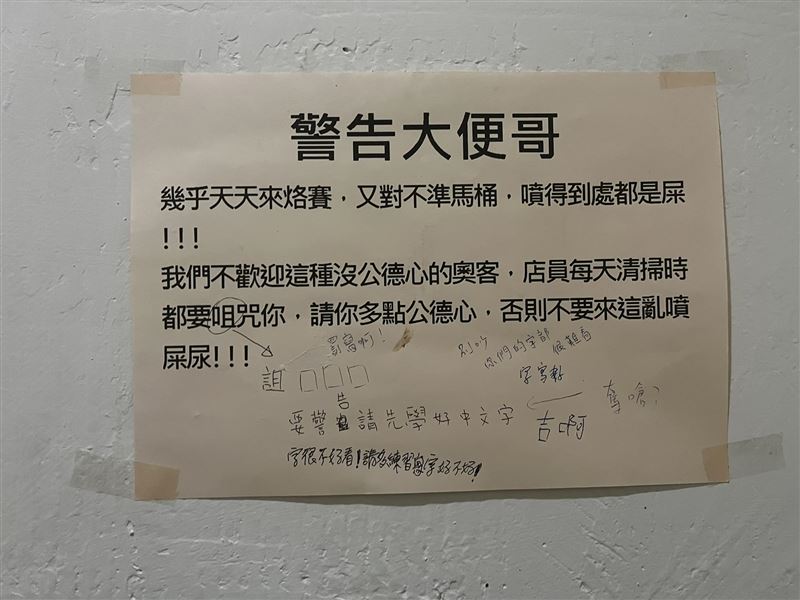 警告大便哥
幾乎天天來烙賽，又對不準馬桶，噴得到處都是屎
!!!
我們不歡迎這種沒公德心的奧客，店員每天清掃時
都要咀咒你，請你多點公德心，否則不要來這亂噴
屎尿!!!
罰寫啊!
別吵
你們的字都
很難看
詛 □□□
字寫
告
要警 請先學好中文字
吉啊
奪嗆?
字很不好看!請多練習 字好不好!